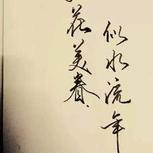 花美眷
似水流年